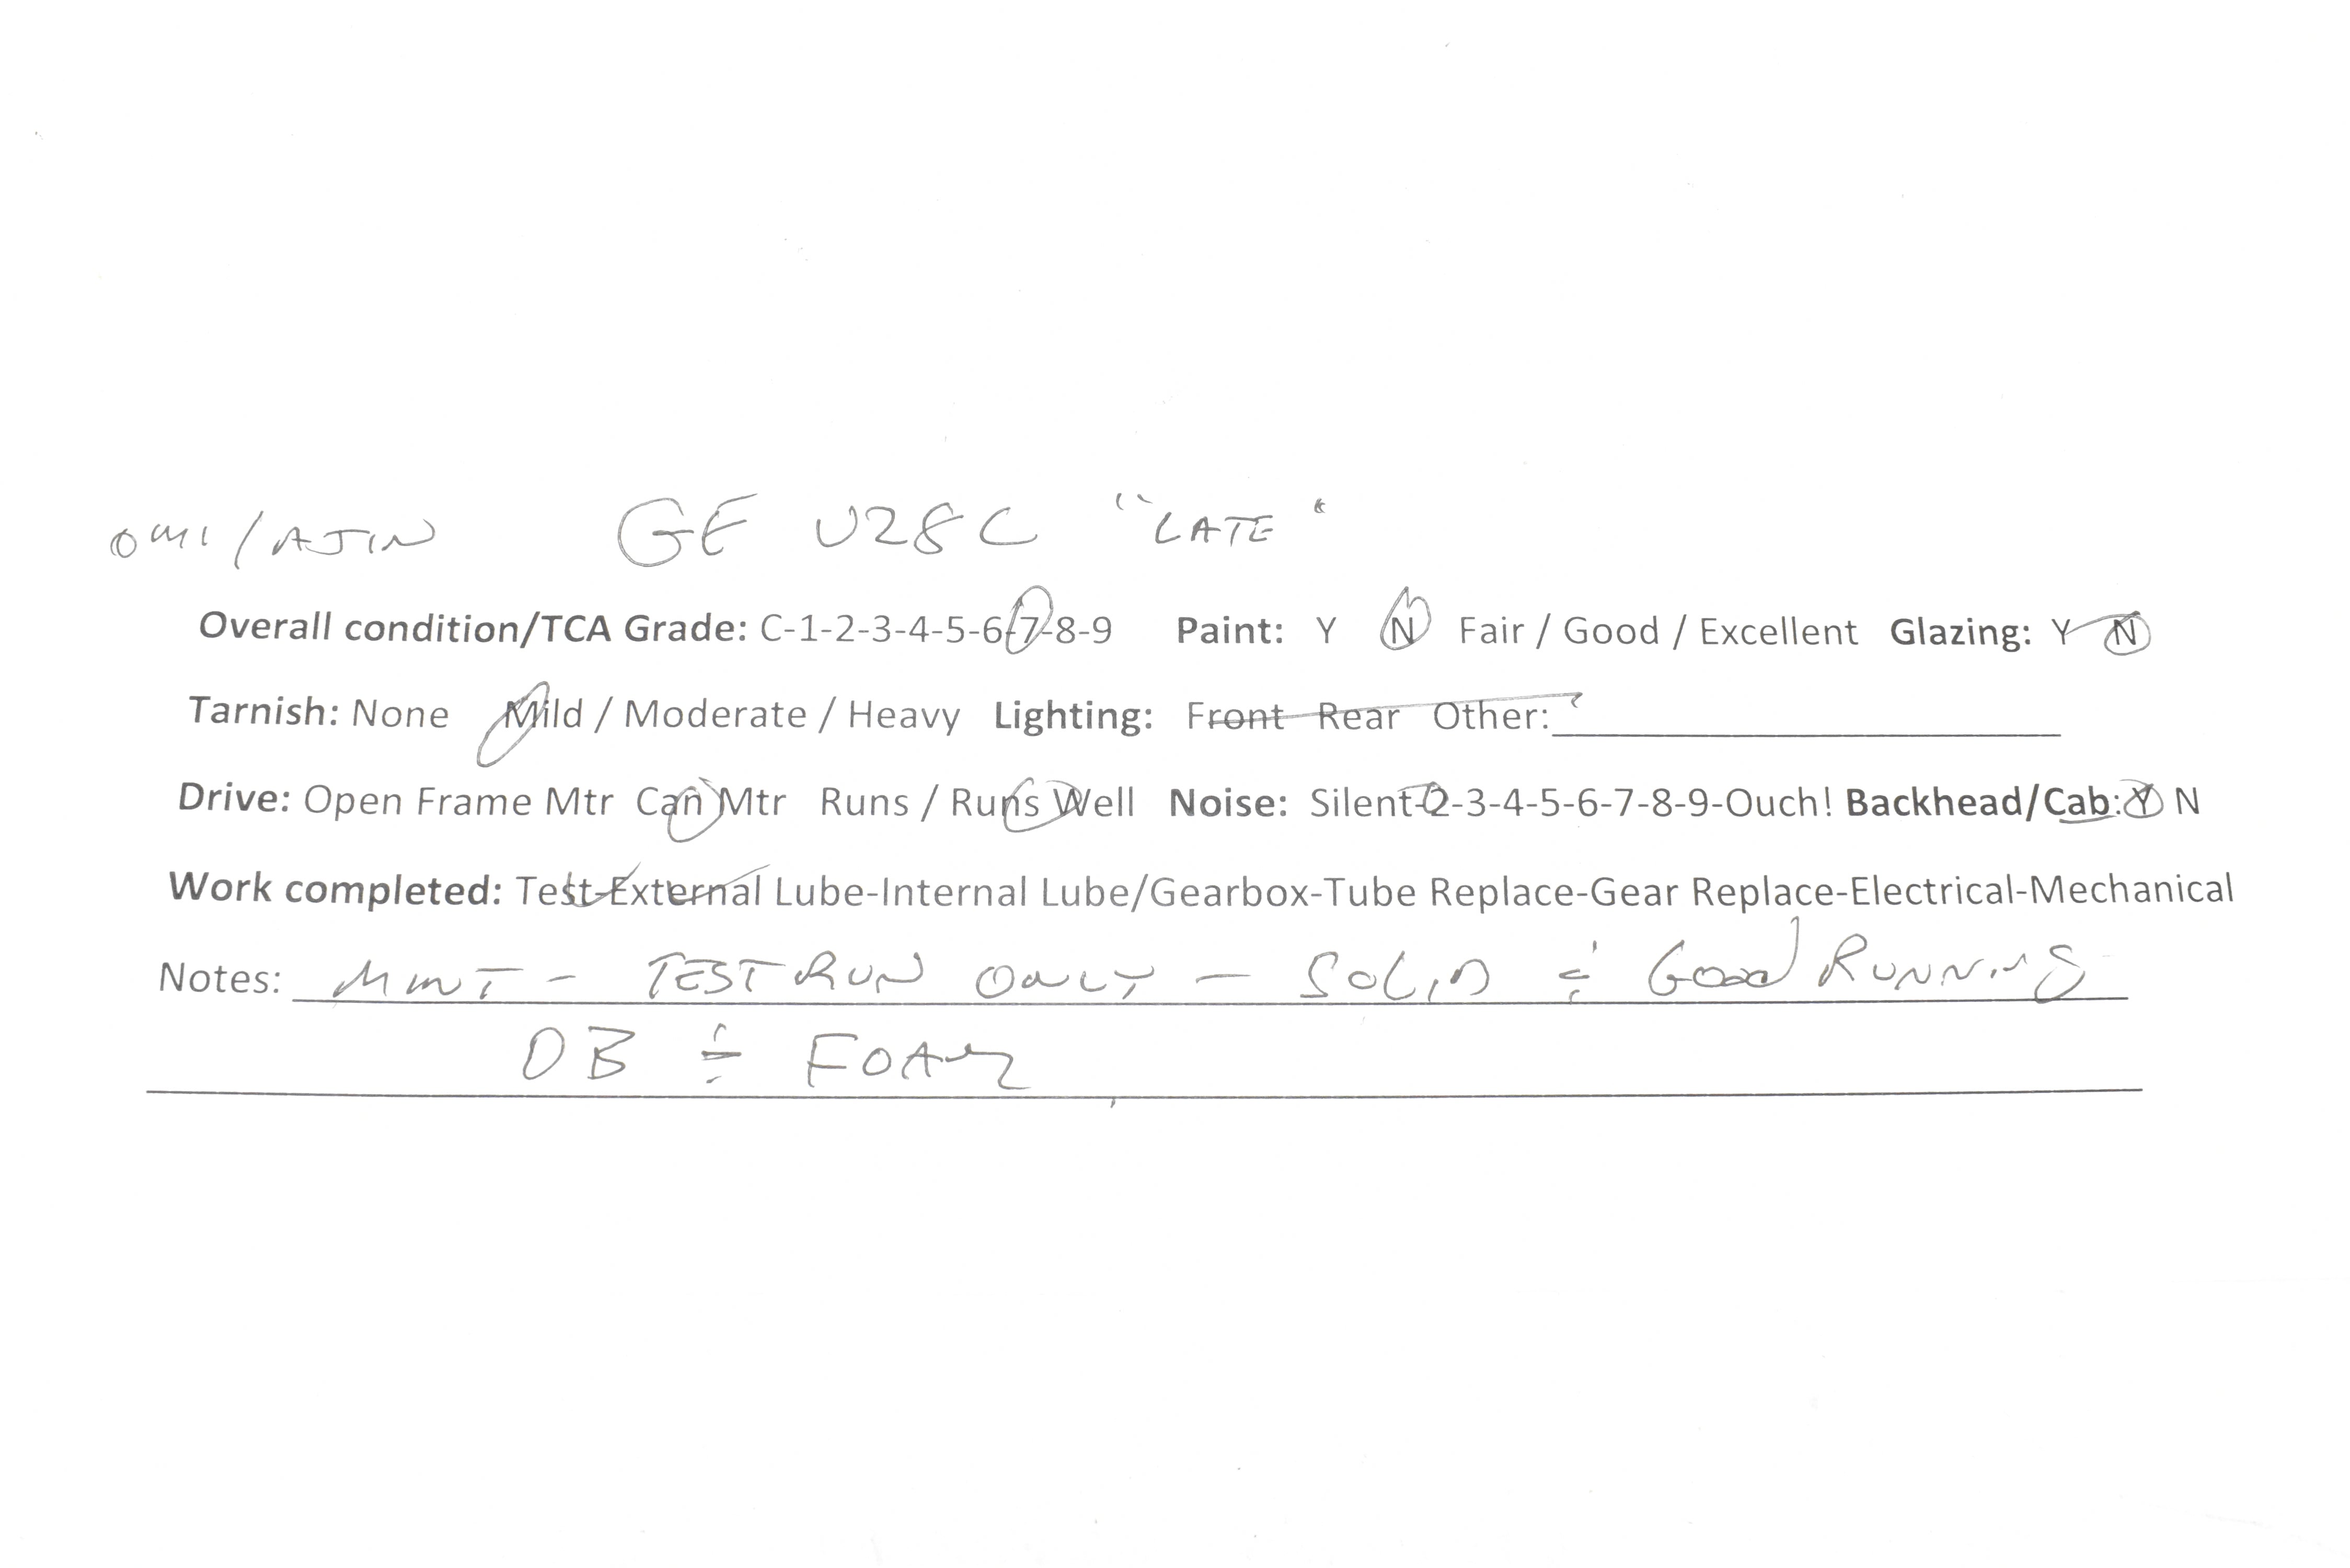 OMI/AJIN GE U28C "LATE"
Overall condition/TCA Grade: C-1-2-3-4-5-6-7-8-9 Paint: Y N Fair / Good / Excellent Glazing: Y N
Tarnish: None Mild / Moderate / Heavy Lighting: Front Rear Other:
Drive: Open Frame Mtr Can Mtr Runs / Runs Well Noise: Silent-2-3-4-5-6-7-8-9-Ouch! Backhead/Cab: Y N
Work completed: Test-External Lube-Internal Lube/Gearbox-Tube Replace-Gear Replace-Electrical-Mechanical
Notes: MINT - TEST RUN ONLY - SOLID & GOOD RUNNING
DB & FOAM